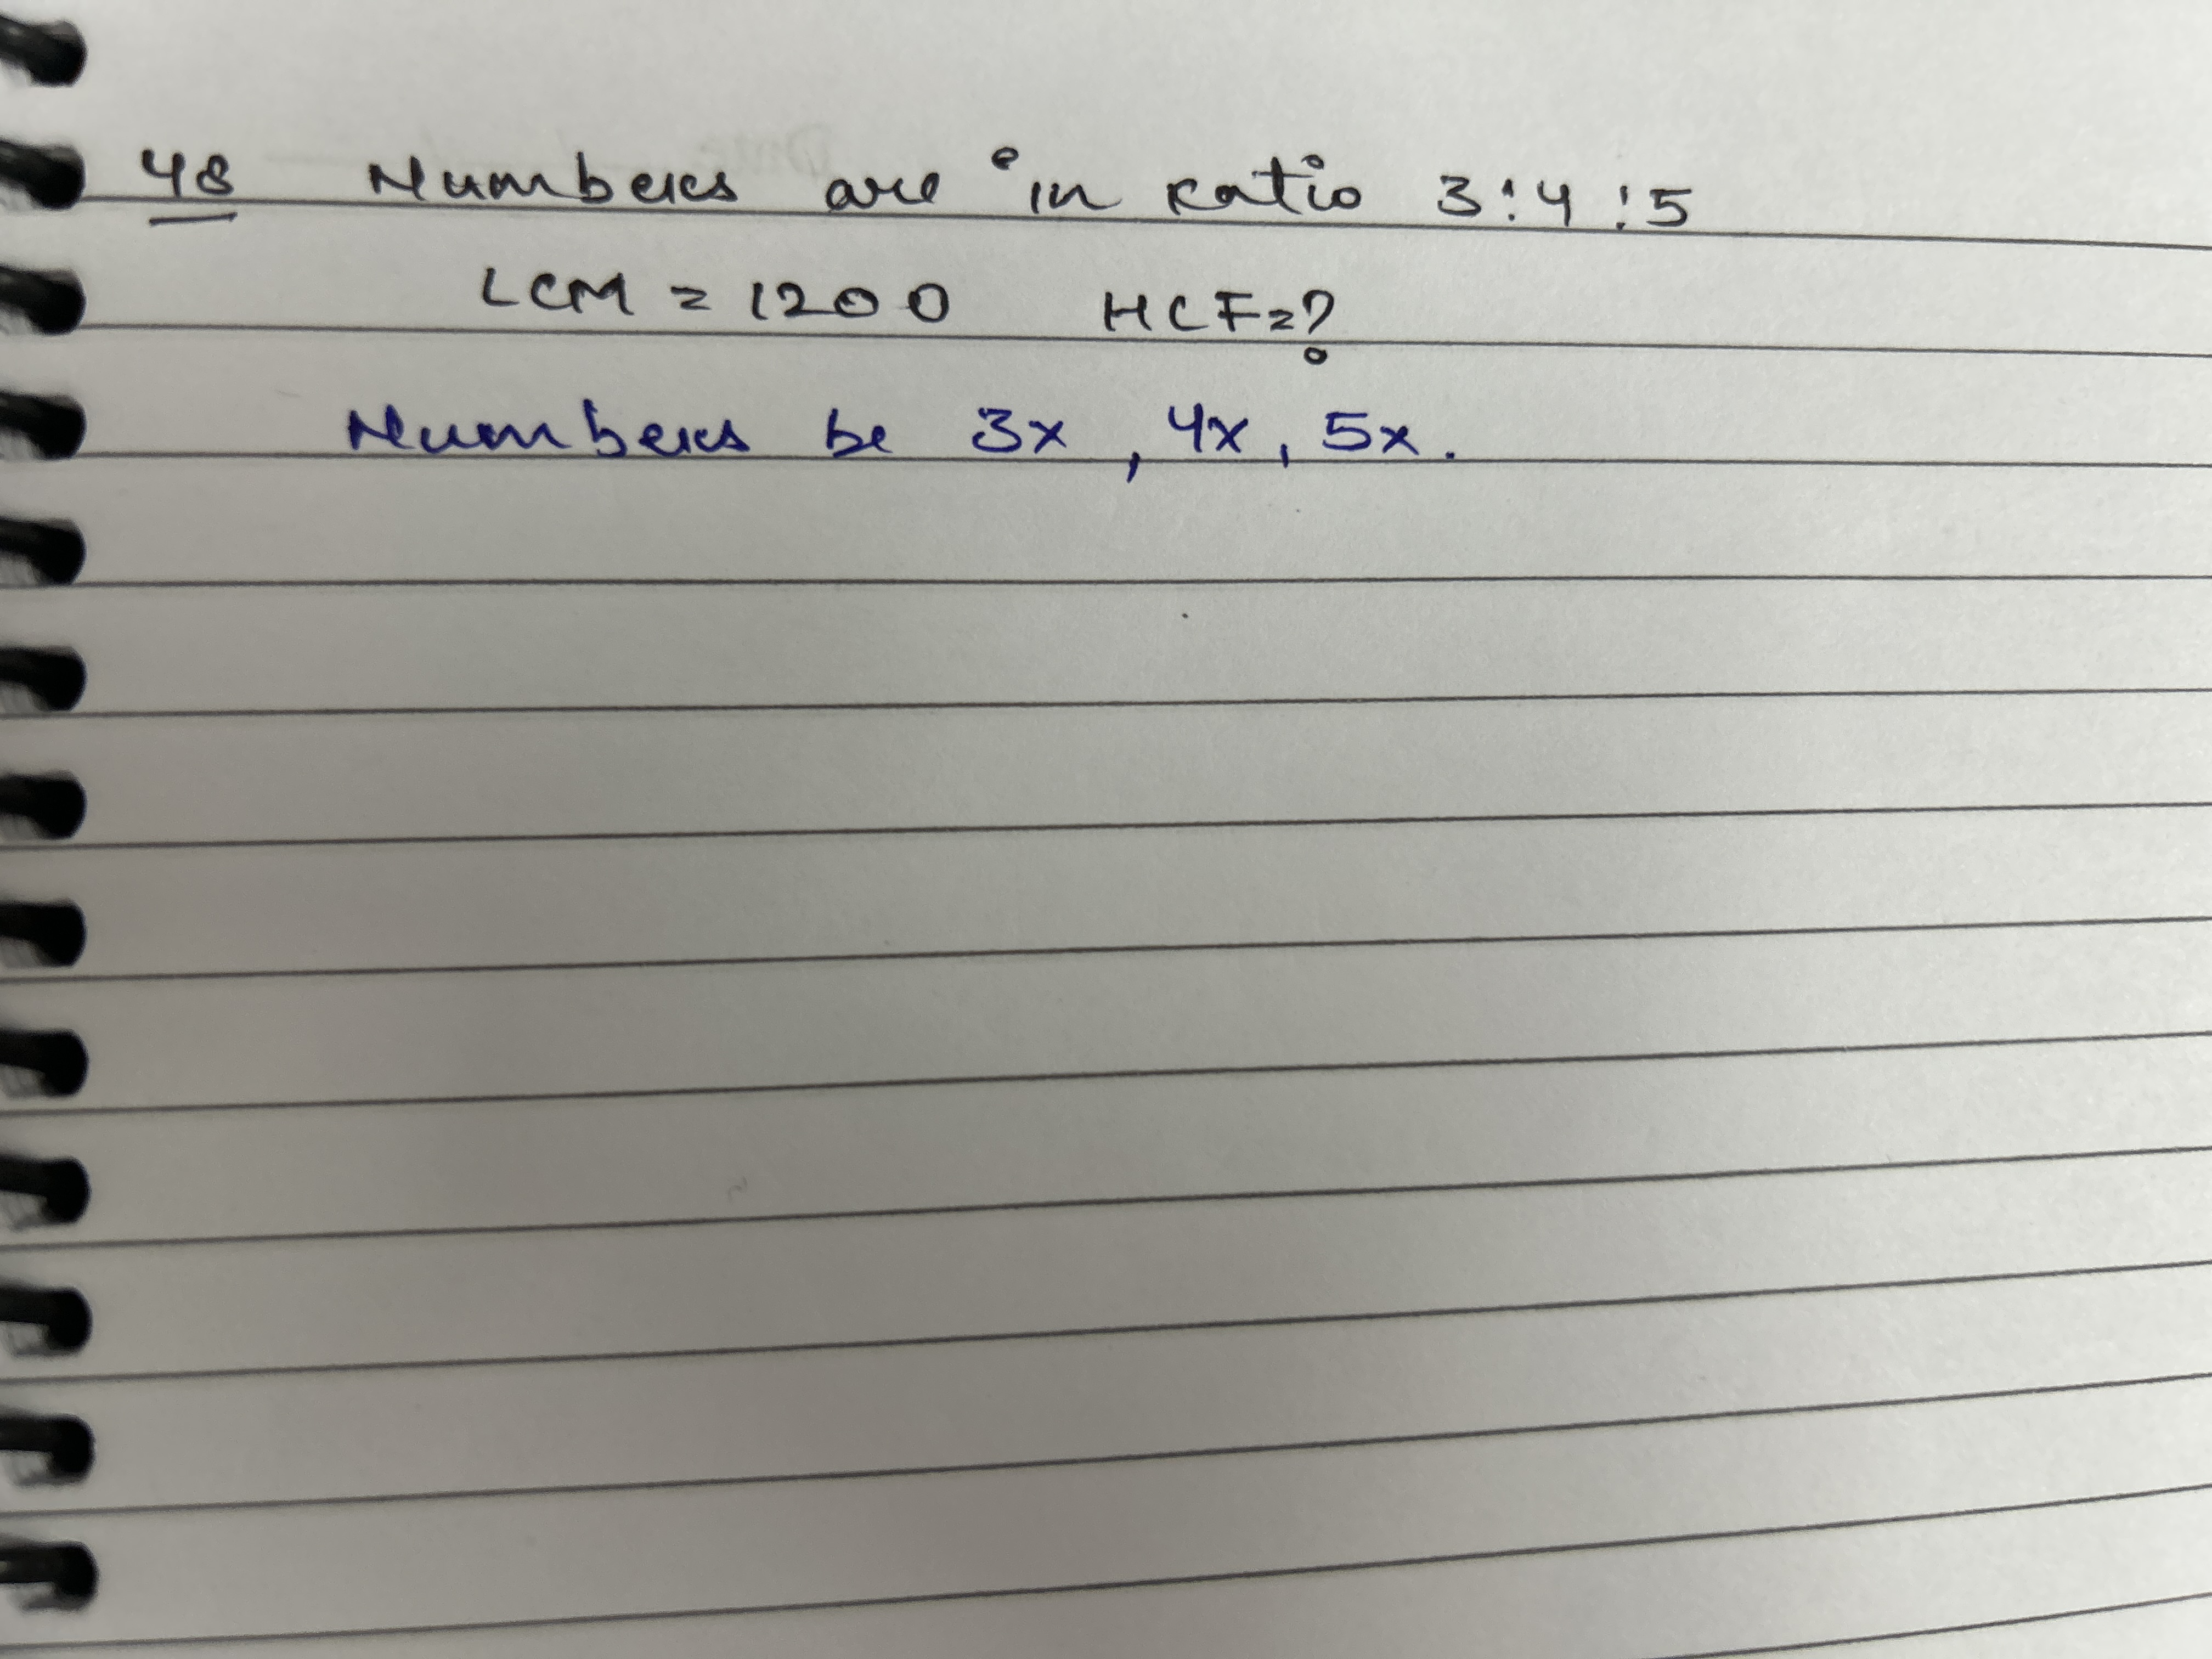 48 Numbers are in ratio 3:4:5
LCM = 1200 HCF=?
Numbers be 3x, 4x, 5x.